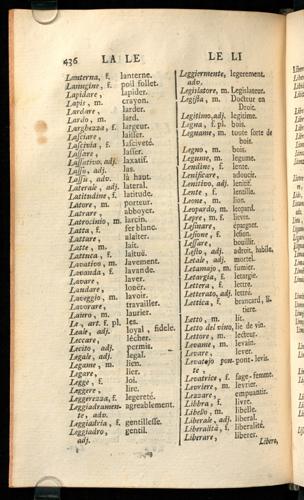 436 LA LE LE LI
Lanterna, f. lanterne.
Lanugine, f. poil follet.
Lapidare, lapider.
Lapis, m. crayon.
Lardare, larder.
Lardo, m. lard.
Larghezza, f. largeur.
Lasciare, laisser.
Lascivia, f. lasciveté.
Lassare, lasser.
Lassativo, adj. laxatif.
Lasso, adj. las.
Lassù, adv. là haut.
Laterale, adj. lateral.
Latitudine, f. latitude.
Latore, m. porteur.
Latrare, abboyer.
Latrocinio, m. larcin.
Latta, f. fer blanc.
Lattare, alaiter.
Latte, m. lait.
Lattuca, f. laituë.
Lavativo, m. lavement.
Lavanda, f. lavande.
Lavare, laver.
Laudare, louër.
Laveggio, m. lavoir.
Lavorare, travailler.
Lauro, m. laurier.
Le, art. f. pl. les.
Leale, adj. loyal, fidele.
Leccare, lécher.
Lecito, adj. permis.
Legale, adj. legal.
Legame, m. lien.
Legare, lier.
Legge, f. loi.
Leggere, lire.
Leggerezza, f. legereté.
Leggiadramen- agreablement.
te, adv.
Leggiadria, f. gentillesse.
Leggiadro, gentil.
adj.
Leggiermente, legerement.
adv.
Legislatore, m. Legislateur.
Legista, m. Docteur en
Droit.
Legitimo, adj. legitime.
Legna, f. pl. bois.
Legname, m. toute sorte de
bois.
Legno, m. bois.
Legume, m. legume.
Lendine, f. lente.
Lenificare, adoucir.
Lenitivo, adj. lenitif.
Lente, f. lentille.
Leone, m. lion.
Leopardo, m. leopard.
Lepre, m. f. lievre.
Lesinare, épargner.
Lesione, f. lesion.
Lessare, bouillir.
Lesto, adj. adroit, habile.
Letale, adj. mortel.
Letamajo, m. fumier.
Letargia, f. letargie.
Lettera, f. lettre.
Letterato, adj. lettré.
Lettica, f. brancard, li-
tiere.
Letto, m. lit.
Letto del vino, lie de vin.
Lettore, m. lecteur.
Levame, m. levain.
Levare, lever.
Levatojo pon- pont-levis.
te,
Levatrice, f. sage-femme.
Levriere, m. levrier.
Lezzare, empuantir.
Libbra, f. livre.
Libello, m. libelle.
Liberale, adj. liberal.
Liberalità, f. liberalité.
Liberare, liberer.
Libero,